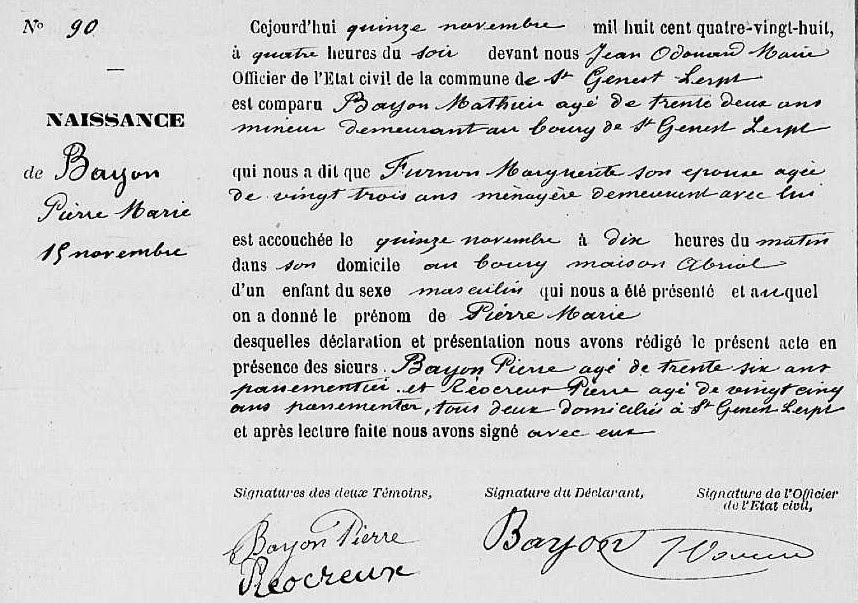 N° 90
NAISSANCE
de Bayon
Pierre Marie
15 novembre
Cejourd'hui quinze novembre mil huit cent quatre-vingt-huit,
à quatre heures du soir devant nous Jean Odouard Marie
Officier de l'Etat civil de la commune de St Genest Lerpt
est comparu Bayon Mathieu agé de trente deux ans
mineur demeurant au bourg de St Genest Lerpt
qui nous a dit que Furnon Marguerite son epouse agée
de vingt trois ans ménagère demeurent avec lui
est accouchée le quinze novembre à dix heures du matin
dans son domicile au bourg maison Abrial
d'un enfant du sexe masculin qui nous a été présenté et auquel
on a donné le prénom de Pierre Marie
desquelles déclaration et présentation nous avons rédigé le présent acte en
présence des sieurs Bayon Pierre agé de trente six ans
passementier et Réocreux Pierre agé de vingt cinq
ans passementier, tous deux domiciliés à St Genest Lerpt
et après lecture faite nous avons signé avec eux
Signatures des deux Témoins,
Signature du Déclarant,
Signature de l'Officier
de l'Etat civil,
Bayon Pierre
Réocreux
Bayon